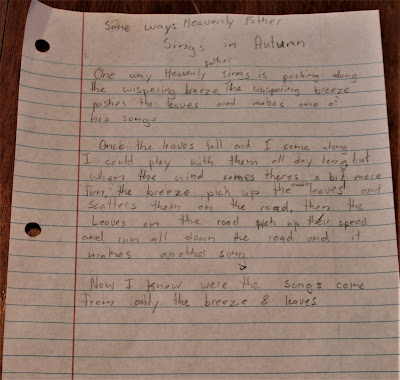 Some ways Heavenly Father
Sings in Autumn
One way Heavenly father sings is pushing along
the wispering breeze. The wispering breeze
pushes the leaves and makes one of
his songs
Once the leaves fall and I come along
I could play with them all day long, but
when the wind comes theres a bit more
fun, the breeze pick up the leaves and
scatters them on the road, then the
Leaves on the road pick up their speed
and run all down the road and it
makes another song
Now I know were the songs come
from only the breeze & leaves